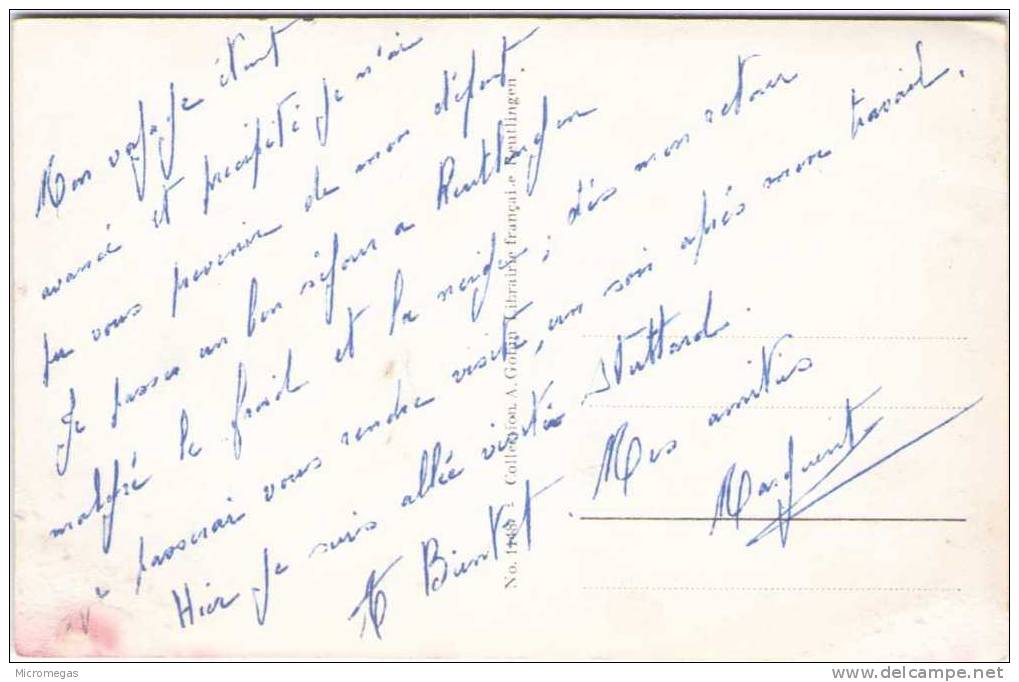 Mon voyage étant
avancé et précipité je n'ai
pu vous prevenir de mon départ
Je passe un bon séjour a Reutlingen
malgré le froid et la neige ; dès mon retour
je passerai vous rendre visite, un soir après mon travail.
Hier je suis allée visité Stuttard.
A Bientôt. Mes amitiés
Marguerit
Collection. A. Librairie française Reutlingen.
Micromegas
www.delcampe.net